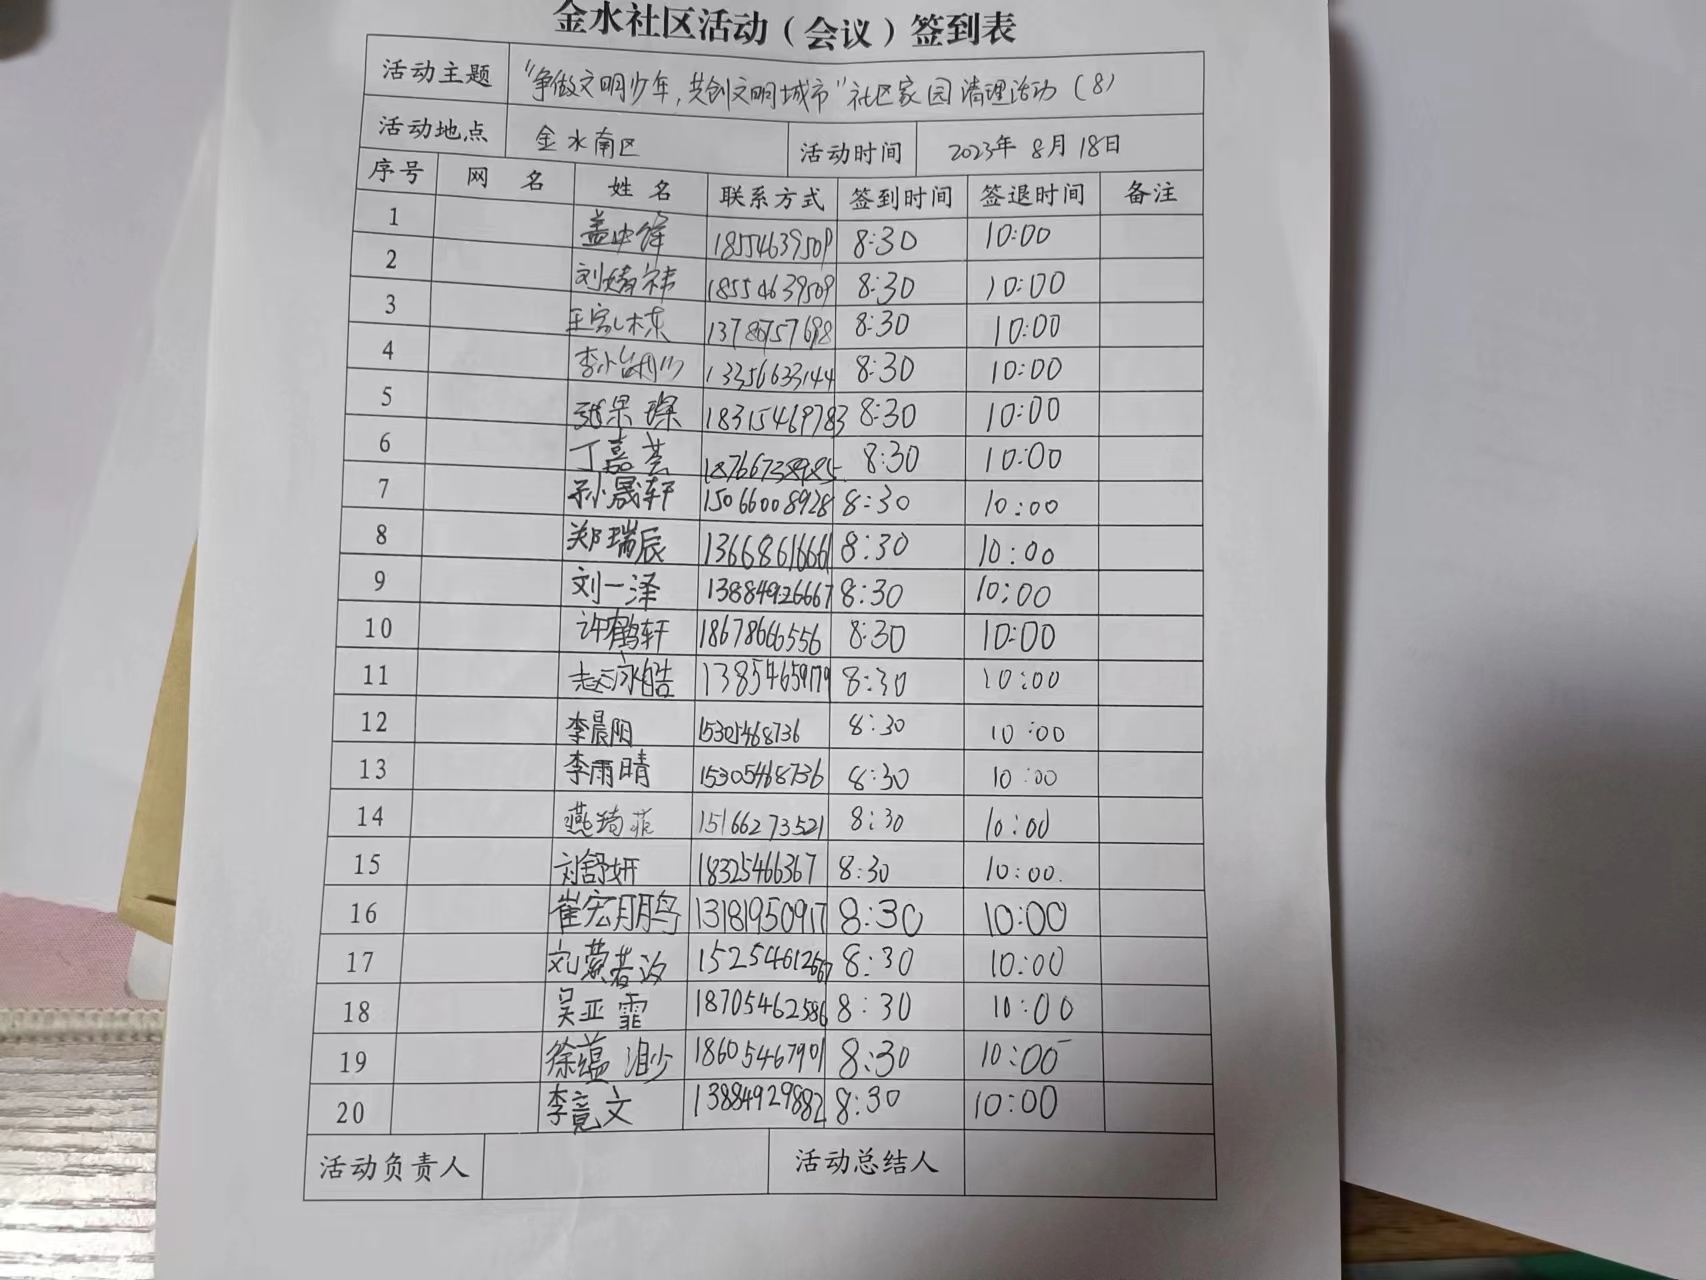 金水社区活动（会议）签到表
活动主题 “争做文明少年，共创文明城市”社区家园清理活动（8）
活动地点 金水南区 活动时间 2023年8月18日
序号 网名 姓名 联系方式 签到时间 签退时间 备注
1 盖中锋 18554639509 8:30 10:00
2 刘婧祎 18554639509 8:30 10:00
3 王家栋 8:30 10:00
4 13356633144 8:30 10:00
5 张果琛 18315469783 8:30 10:00
6 丁嘉芸 8:30 10:00
7 孙晟轩 15066008928 8:30 10:00
8 郑瑞辰 13668616661 8:30 10:00
9 刘一泽 13884926667 8:30 10:00
10 许鹤轩 18678666556 8:30 10:00
11 赵泳皓 13854659179 8:30 10:00
12 李晨阳 15305468736 8:30 10:00
13 李雨晴 15305468736 8:30 10:00
14 燕琦菲 15166273521 8:30 10:00
15 刘舒妍 18325466367 8:30 10:00
16 崔宏鹏 13181950917 8:30 10:00
17 8:30 10:00
18 吴亚霏 18705462586 8:30 10:00
19 18605467901 8:30 10:00
20 李竟文 13884929882 8:30 10:00
活动负责人 活动总结人